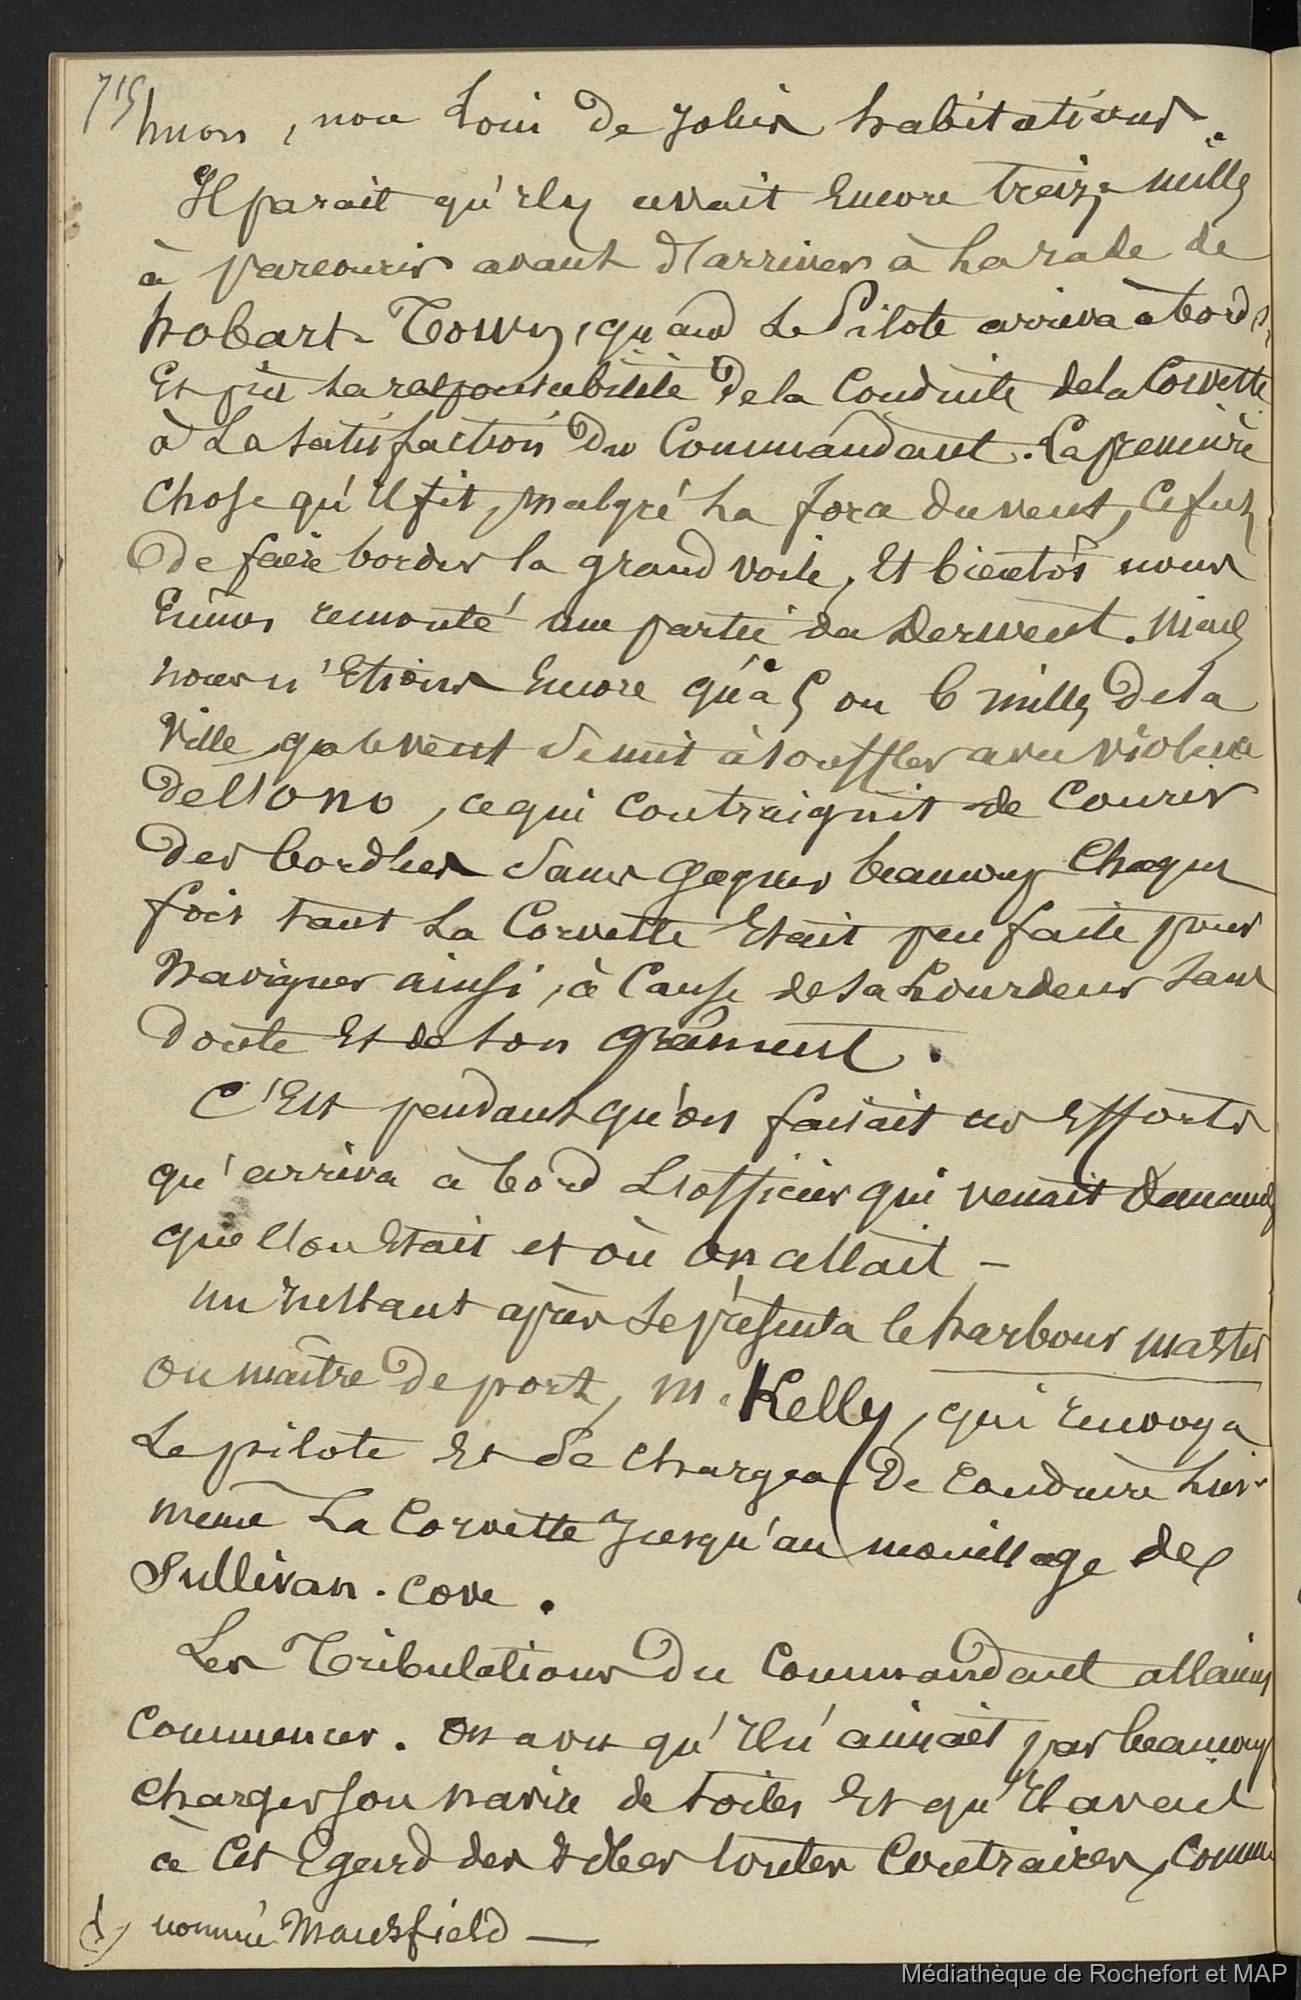 715
huon, non loin de jolies habitations.
Il parait qu'il y avait encore treize milles
à parcourir avant d'arriver à la rade de
hobart-Town, quand le Pilote arriva à bord (1)
Et prit la responsabilité de la Conduite de la Corvette
à la satisfaction du Commandant. La première
Chose qu'il fit, malgré la force du vent, Ce fut
de faire border la grand voile, Et bientôt nous
Eumes remonté une partie du Derwent. Mais
nous n'Etions Encore qu'à 5 ou 6 milles de la
Ville que le vent se mit à souffler avec violence
de l'ONO, ce qui contraignit de Courir
des bordées sans gagner beaucoup Chaque
fois tant la Corvette Etait peu faite pour
Naviguer ainsi, à Cause de sa Lourdeur sans
doute Et de son grément.
C'Est pendant qu'on faisait ces Efforts
qu'arriva à bord L'officier qui venait demander
qui l'on Etait et où on allait -
un instant après se présenta le harbour master
ou maître de port, M. Kelly, qui renvoya
Le pilote Et se chargea de Conduire lui-
même La Corvette jusqu'au mouillage de
Sullivan-Cove.
Les Tribulations du Commandant allaient
Commencer. On a vu qu'il n'aimait pas beaucoup
charger son navire de toiles Et qu'Il avait
à Cet Egard des idées toutes Contraires, Comme
(1) nommé Mansfield —
Médiathèque de Rochefort et MAP